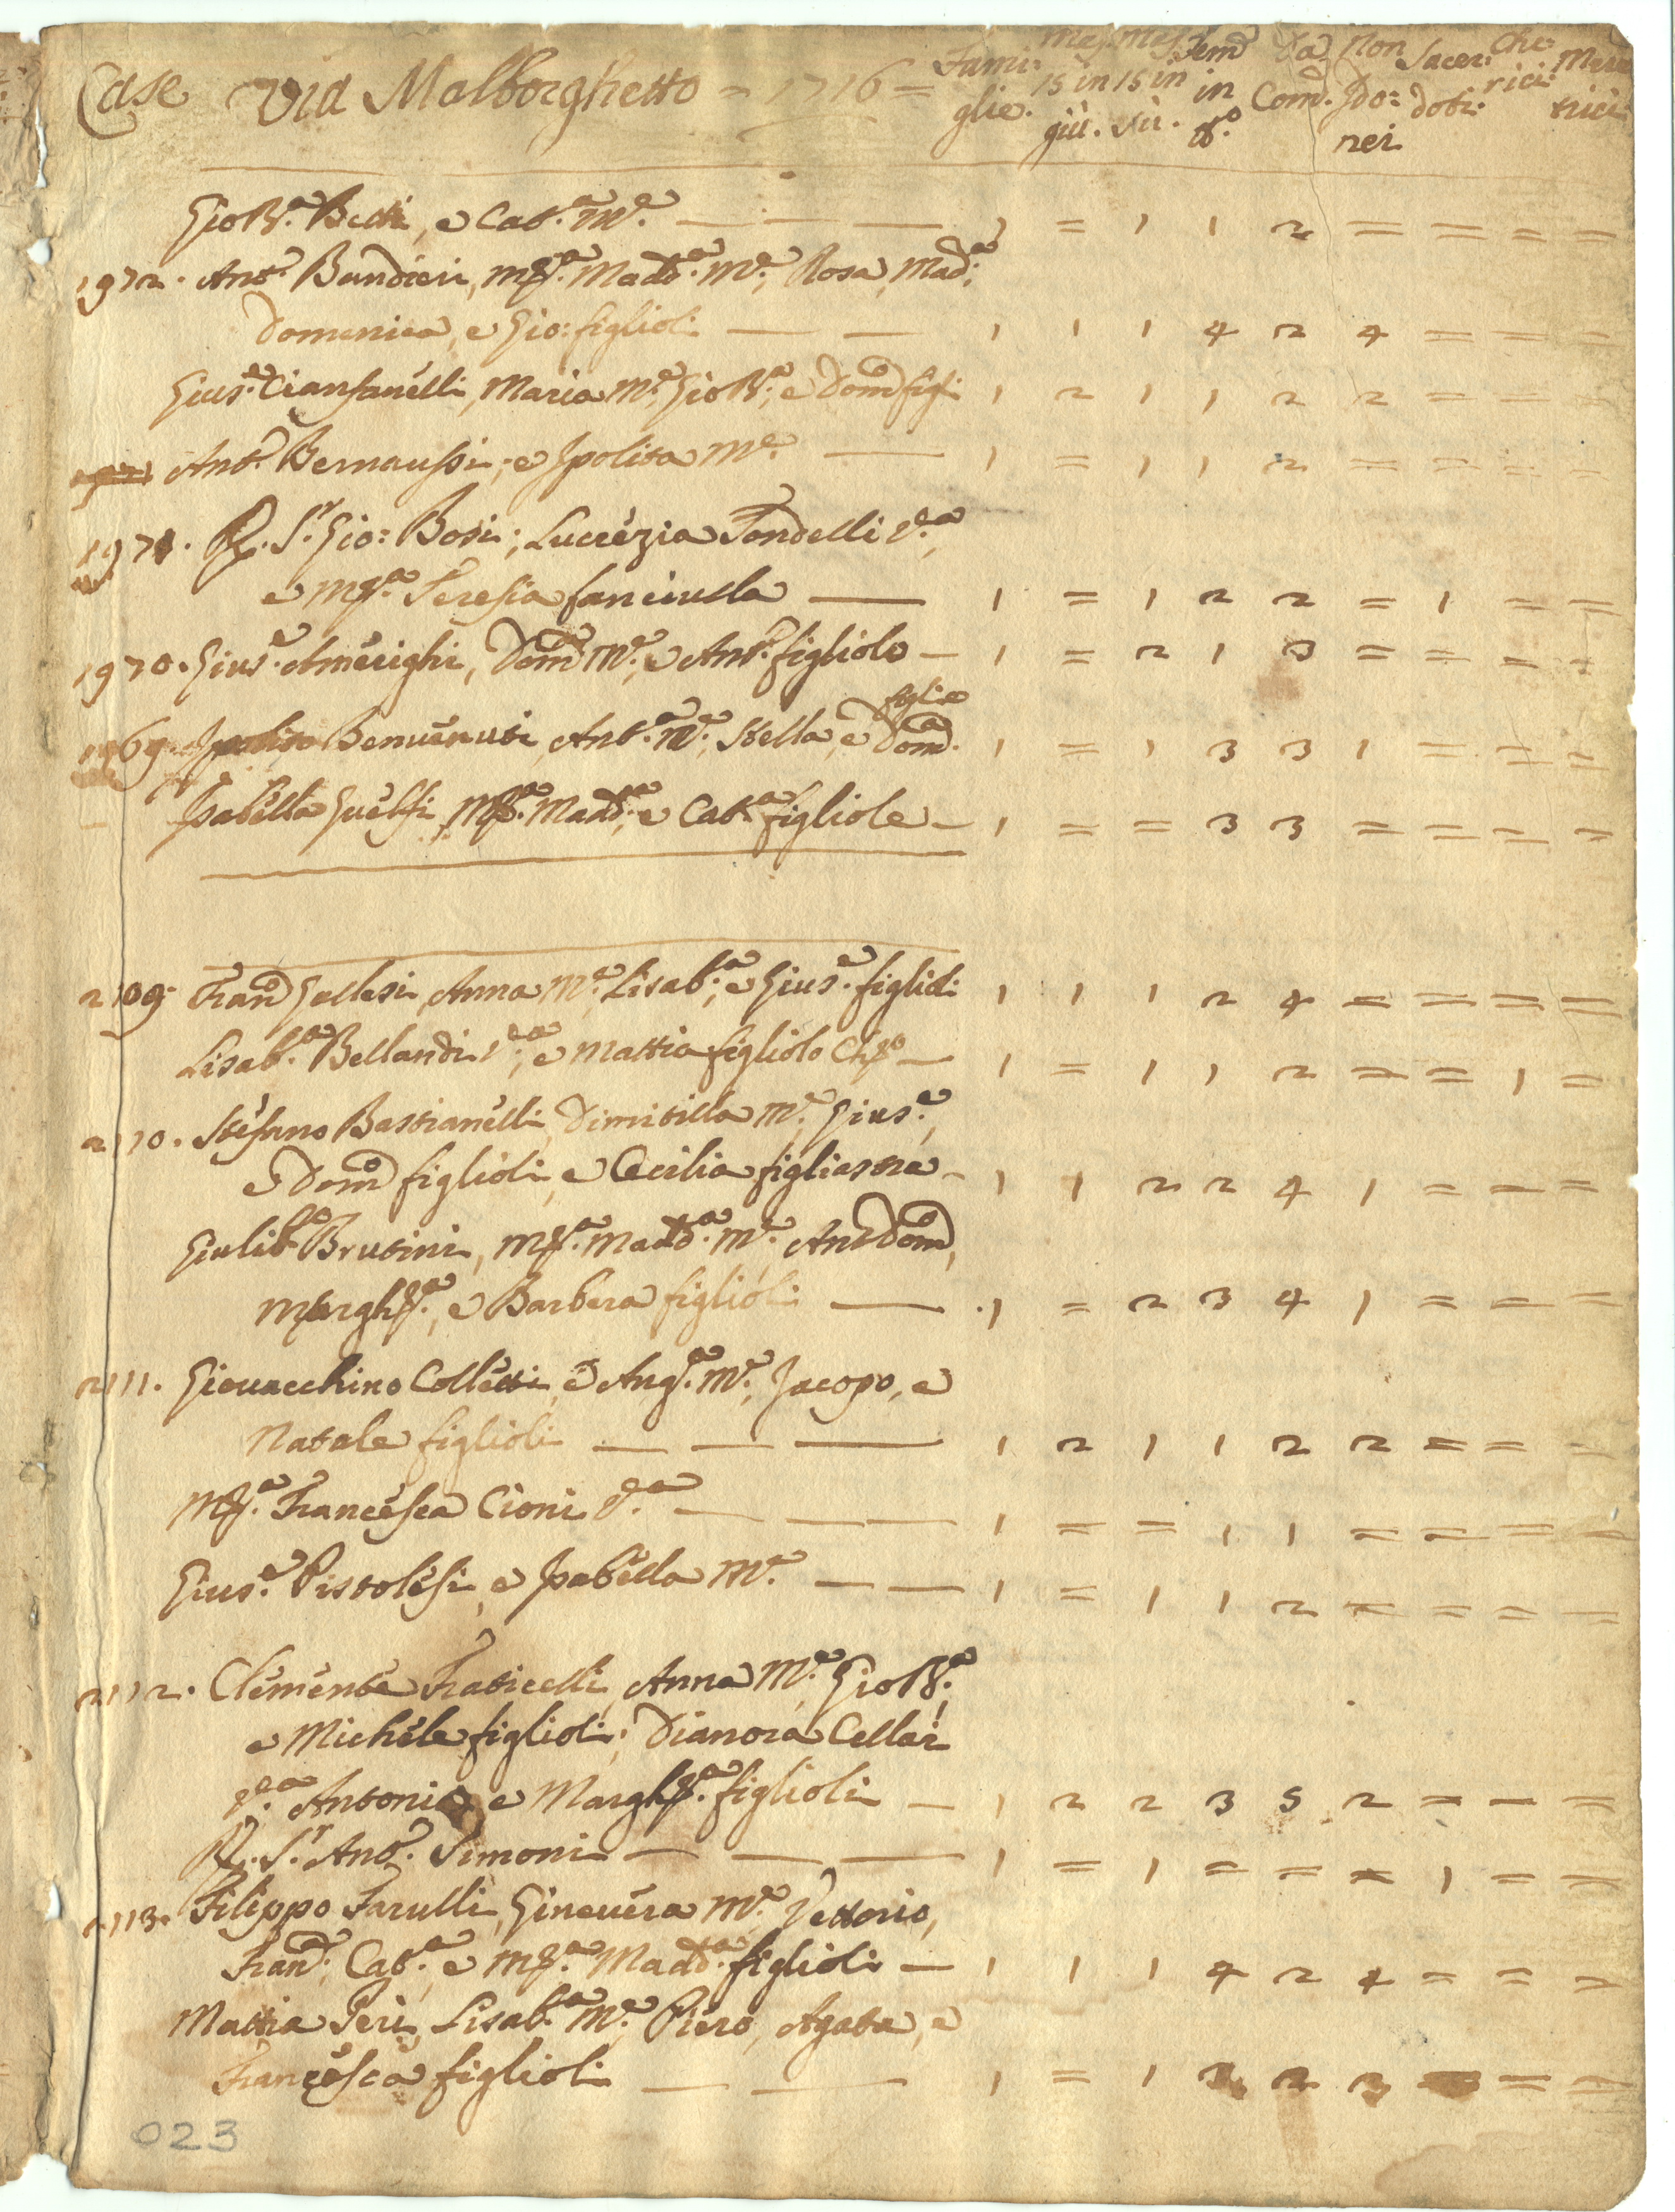 Case Via Malborghetto = 1716 =
Fami: glie. Mas. 15 in giù. Mas. 15 in sù. Fem. in Da Com. Non Ido: nei Sacer: doti. Che: rici. Mere trici
Gio Ba. Betti, e Cat.a M.e — — — 1 = 1 1 2 = = = =
1972. Ant.o Bandieri, M.a Madd.a M.e, Rosa, Mad.a,
Domenica, e Gio: figlioli — — 1 1 1 4 2 4 = = =
Gius.e Cianfanelli, Maria M.e, Gio Ba., e Dom.o figli 1 2 1 1 2 2 = = =
Ant.o Bernaussi, e Ipolita M.e — 1 = 1 1 2 = = = =
1971. R. S.r Gio: Bosi; Lucrezia Fondelli V.a,
e M.a Teresia fanciulla — 1 = 1 2 2 = 1 = =
1970. Gius.e Amerighi, Dom.a M.e, e Ant.o figliolo — 1 = 2 1 3 = = = =
figlie
1969. Benvenuti, Ant.a M.e, Stella, e Dom.a 1 = 1 3 3 1 = = =
Isabella Guelfi, M.a Madd.a, e Cat.a figliole — 1 = = 3 3 = = = =
2109. Fran.o Gallesi, Anna M.e, Lisab.a, e Gius.e figlioli 1 1 1 2 4 = = = =
Lisab.a Bellandi V.a, e Mattia figliolo Ch.o — 1 = 1 1 2 = = 1 =
2110. Stefano Bastianelli, Dimitilla M.e, Gius.e,
e Dom.o figlioli, e Cecilia figliastra — 1 1 2 2 4 1 = = =
Giulio Brutini, M.a Madd.a M.e, Ant. Dom.o,
Margh.a, e Barbera figlioli — 1 = 2 3 4 1 = = =
2111. Giovacchino Colletti, e Ang.a M.e, Jacopo, e
Natale figlioli — — — 1 2 1 1 2 2 = = =
M.a Francesca Cioni V.a — — — 1 = = 1 1 = = = =
Gius.e Pistolesi, e Isabella M.e — — 1 = 1 1 2 = = = =
2112. Clemente Fraticelli, Anna M.e, Gio Ba.,
e Michele figlioli; Dianora Cellai
V.a Antonio, e Margh.a figlioli — 1 2 2 3 5 2 = = =
R. S.r Ant.o Simoni — — — 1 = 1 = = = 1 = =
2113. Filippo Farulli, Ginevera M.e, Vettorio,
Fran.a, Cat.a, e M.a Madd.a figlioli — 1 1 1 4 2 4 = = =
Mattia Peri, Lisab.a M.e, Piero, Agata, e
Francesca figlioli — — 1 = 1 3 2 3 = =
023